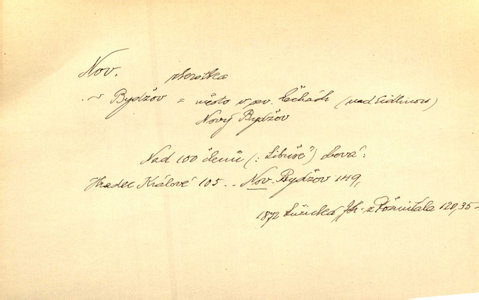 Nov. zkratka
~ Bydžov = město v sv. Čechách (nad Cidlinou)
Nový Bydžov
Nad 100 členů (: "Libuše") čbová:
Hradec Králové 105 .. Nov. Bydžov 149,
1872 Lužická Jh. z Rožmitála 120, 35 –